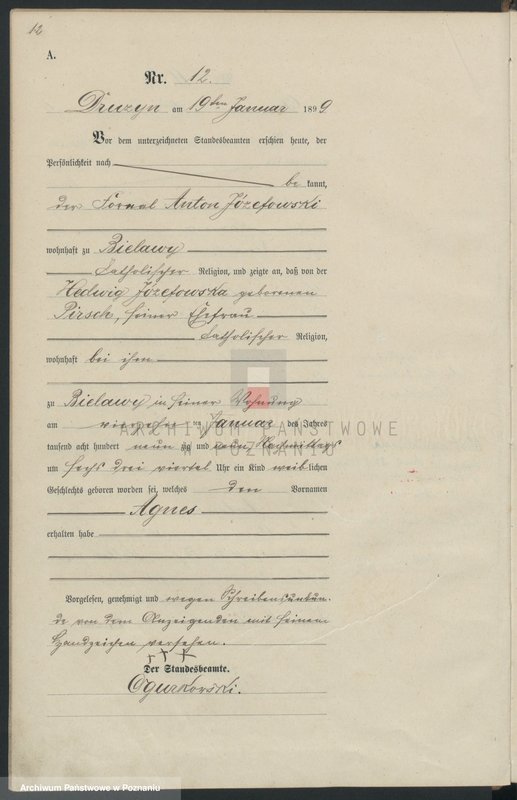 12
A.
Nr. 12.
Druzyn am 19ten Januar 1899
Vor dem unterzeichneten Standesbeamten erschien heute, der
Persönlichkeit nach
be kannt,
der Fornal Anton Józefowski
wohnhaft zu Bielawy
katholischer Religion, und zeigte an, daß von der
Hedwig Józefowska geborenen
Pirsch, seiner Ehefrau
katholischer Religion,
wohnhaft bei ihm
zu Bielawy in seiner Wohnung
am ten Januar des Jahres
tausend acht hundert neun zig und neun Nachmittags
um sechs drei viertel Uhr ein Kind weib lichen
Geschlechts geboren worden sei, welches den Vornamen
Agnes
erhalten habe
Vorgelesen, genehmigt und wegen Schreibensunkun-
de von dem Anzeigenden mit seinem
Handzeichen versehen.
+ + +
Der Standesbeamte.
Ogurkowski.
ARCHIWUM PAŃSTWOWE
W POZNANIU
Archiwum Państwowe w Poznaniu